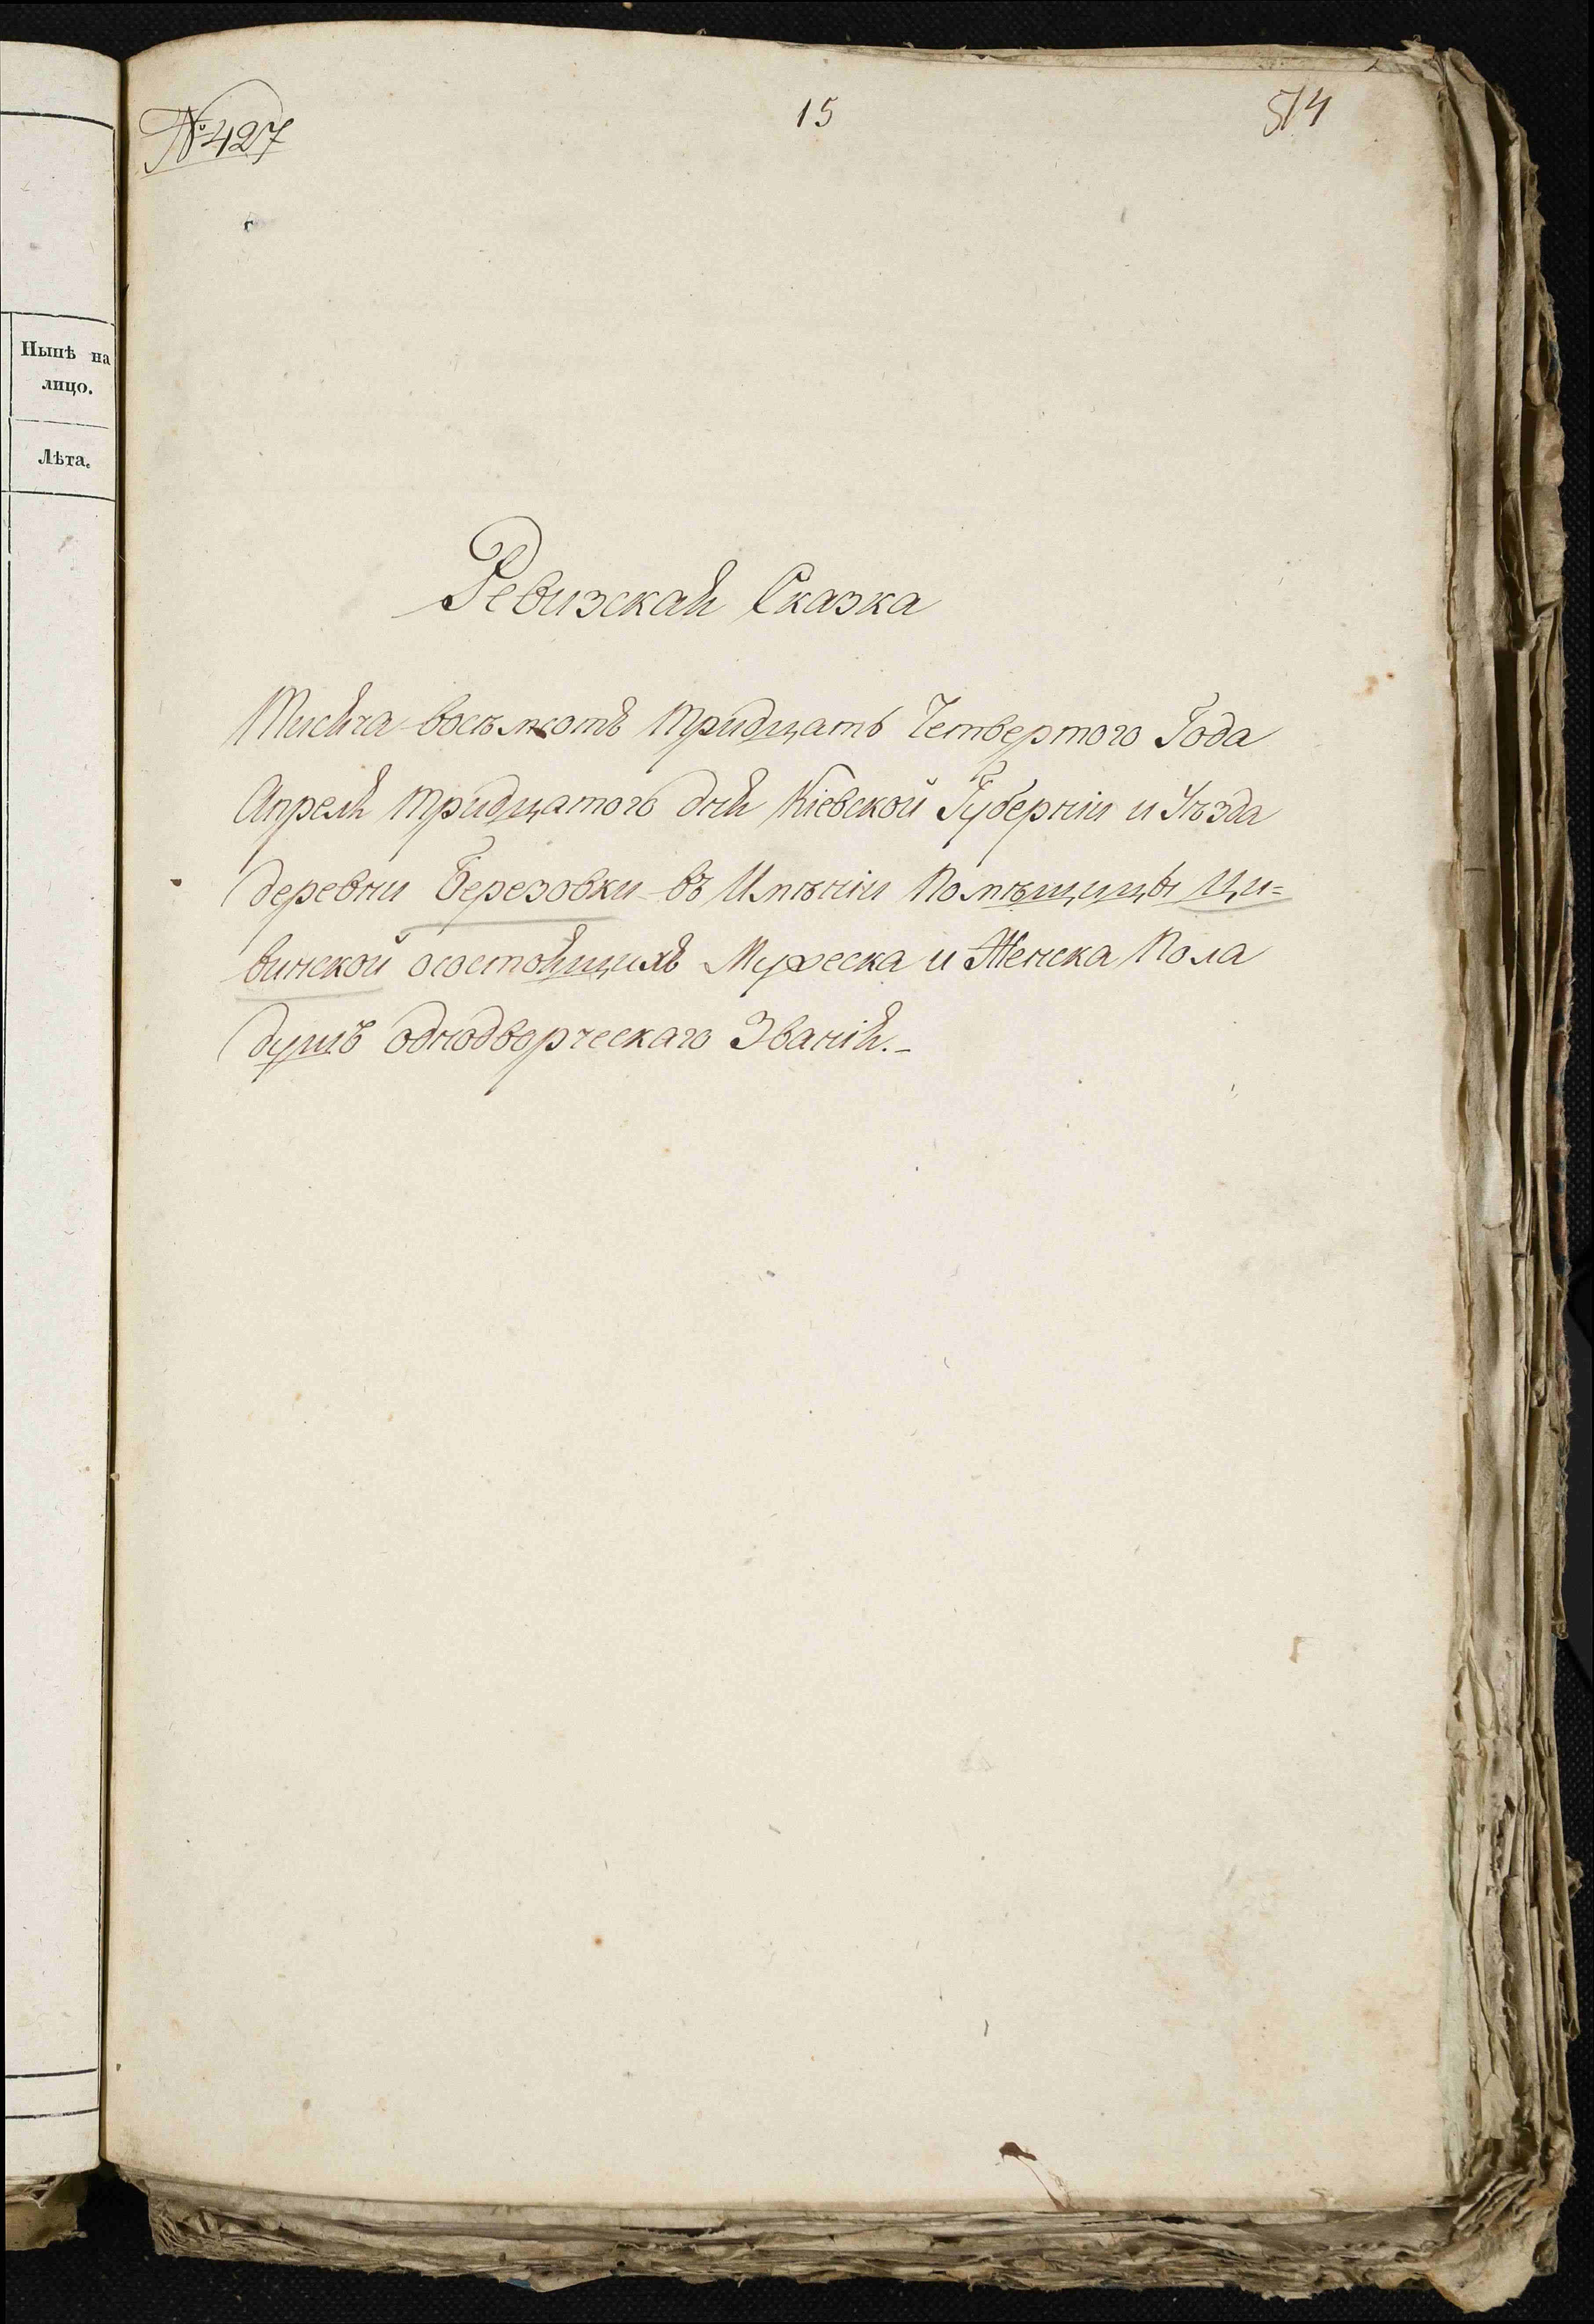 Нынѣ на
лицо.
Лѣта.
№ 427
15
514
Ревизская Сказка
Тисяча восѣмсотъ тридцать Четвертого Года
Апреля тридцатого дня Кіевской Губерніи и Уѣзда
деревни Березовки въ Имѣніи Помѣщицы Ци=
винской осостоящихъ Мужеска и Женска Пола
душъ однодворческаго Званія.-